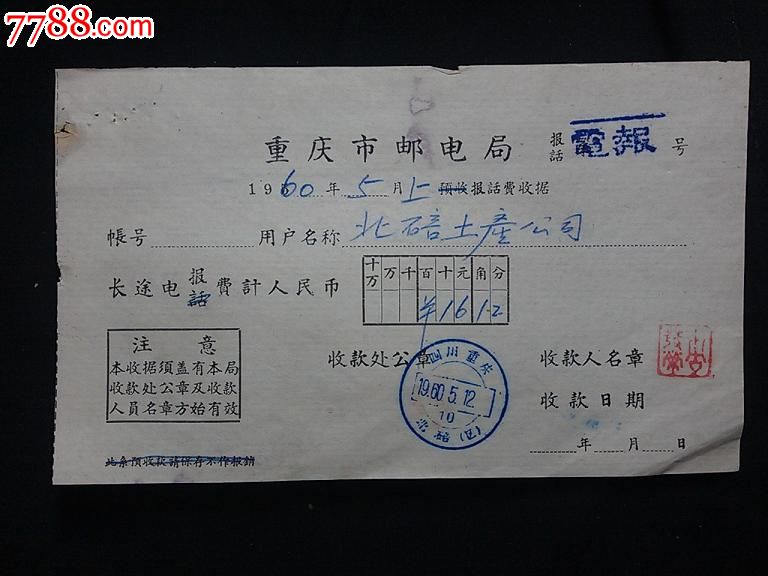 7788.com
重庆市邮电局
报话 電報 号
1960年5月上预收报话费收据
帳号 用户名称 北碚土產公司
十万 万 千 百 十 元 角 分
长途电报话费計人民币 ¥ 1 6 1 2
注意
本收据须盖有本局
收款处公章及收款
人员名章方始有效
收款处公章
四川重庆
1960.5.12
10
北碚(四)
收款人名章
收款日期
年 月 日
此条预收款請保存不作报銷